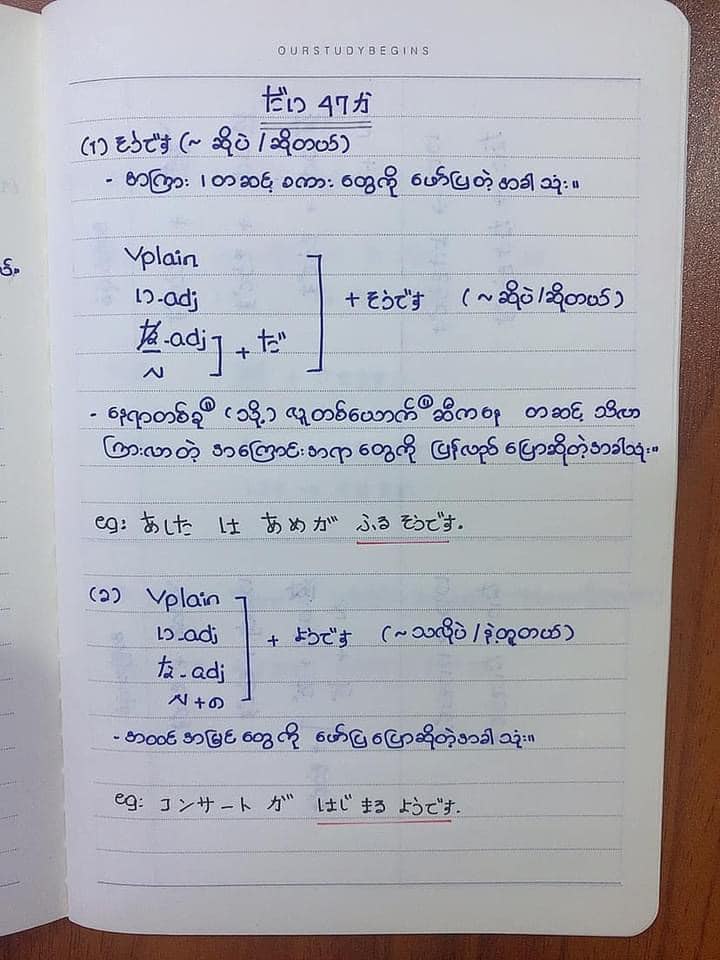 OURSTUDYBEGINS
だい 47 か
(၁) そうです (~ ဆိုပဲ / ဆိုတယ်)
- စာကြား ၊ တဆင့် စကား တွေကို ဖော်ပြတဲ့ အခါ သုံး။
Vplain
い-adj
な-adj
N
+ だ
+ そうです (~ ဆိုပဲ/ဆိုတယ်)
- နေရာတစ်ခု (သို့) လူတစ်ယောက် ဆီကနေ တဆင့် သိလာ
ကြားလာတဲ့ အကြောင်းအရာ တွေကို ပြန်လည် ပြောဆိုတဲ့အခါသုံး။
eg: あした は あめが ふる そうです.
(၁) Vplain
い-adj
な-adj
N+の
+ ようです (~သလိုပဲ / နဲ့တူတယ်)
- အထင် အမြင် တွေကို ဖော်ပြ ပြောဆိုတဲ့အခါ သုံး။
eg: コンサート が はじまる ようです.